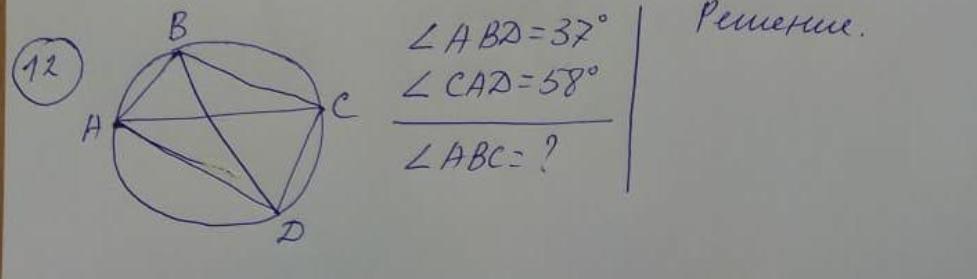 12
B
A
C
D
∠ABD=37°
∠CAD=58°
∠ABC=?
Решение.